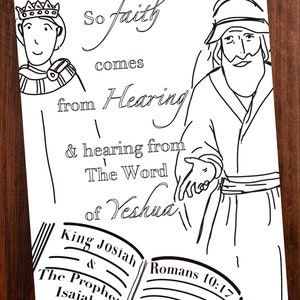 So faith
comes
from Hearing
& hearing from
The Word
of Yeshua
King Josiah
&
The Prophet
Isaiah
Romans 10:17